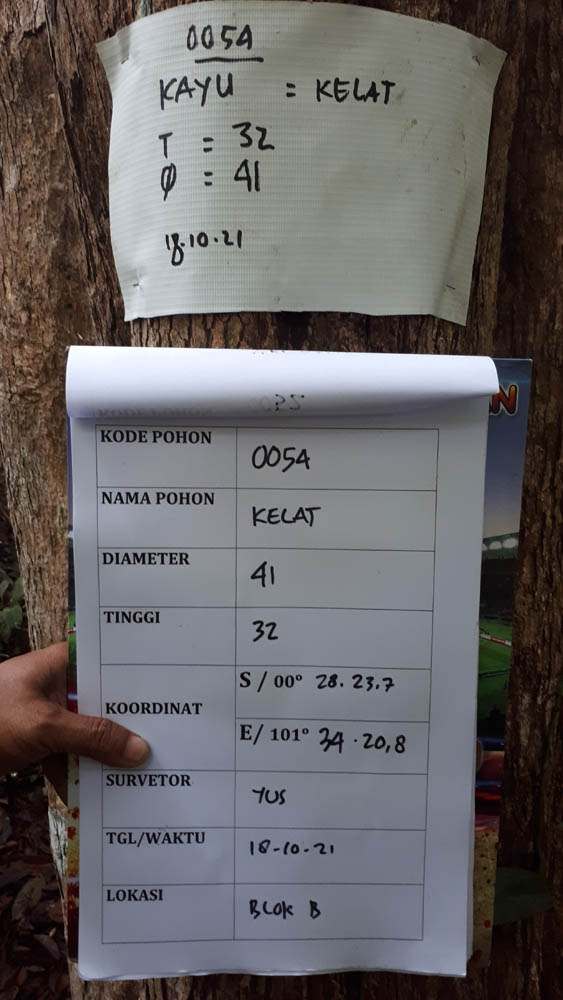 0054
KAYU = KELAT
T = 32
Ø = 41
18.10.21
KODE POHON 0054
NAMA POHON KELAT
DIAMETER 41
TINGGI 32
KOORDINAT
S / 00° 28. 23,7
E/ 101° 34 . 20,8
SURVETOR YUS
TGL/WAKTU 18-10-21
LOKASI BLOK B